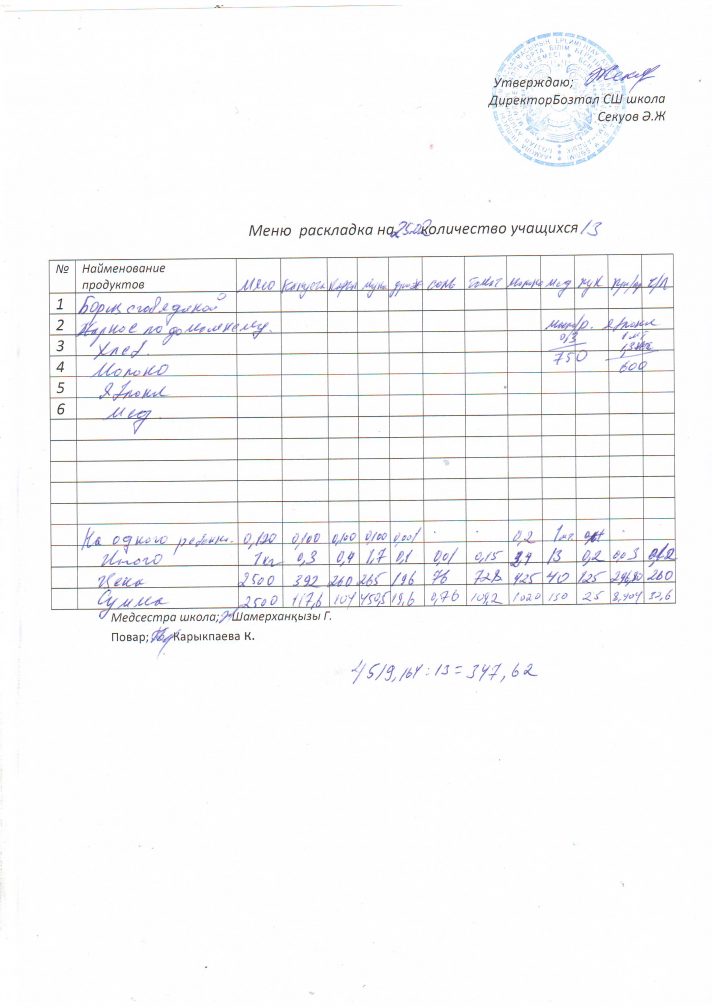 Утверждаю;
ДиректорБозтал СШ школа
Секуов Ә.Ж
Меню раскладка на количество учащихся 13
№ Найменование продуктов мясо капуста карт мука дрож соль томат молоко мед лук
1 Борщ с говядиной
2 Жаркое по домашнему. яблоки
3 Хлеб. 0,3 1 шт
750
4 Молоко 600
5 Яблоки
6 Мед
На одного ребенка. 0,120 0,100 0,100 0,100 0,001 0,2 1шт
Итого 1кг 0,3 0,4 1,7 0,1 0,01 0,15 2,4 13 0,2 0,03
Цена 2500 392 260 265 196 76 728 425 40 125 296,80 260
Сумма 2500 117,6 104 450,5 19,6 0,76 109,2 1020 25 8,904
Медсестра школа; Шамерханқызы Г.
Повар; Карыкпаева К.
4519,164 : 13 = 347,62